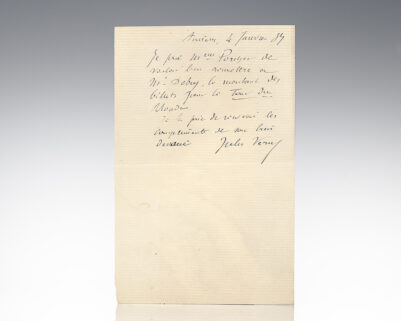 Amiens, 4 Janvier 89
Je prie Mme Porcher de
vouloir bien remettre à
Mr Debry, le montant des
billets pour le Tour du
Monde
Je la prie de recevoir les
compliments de son bien
dévoué Jules Verne